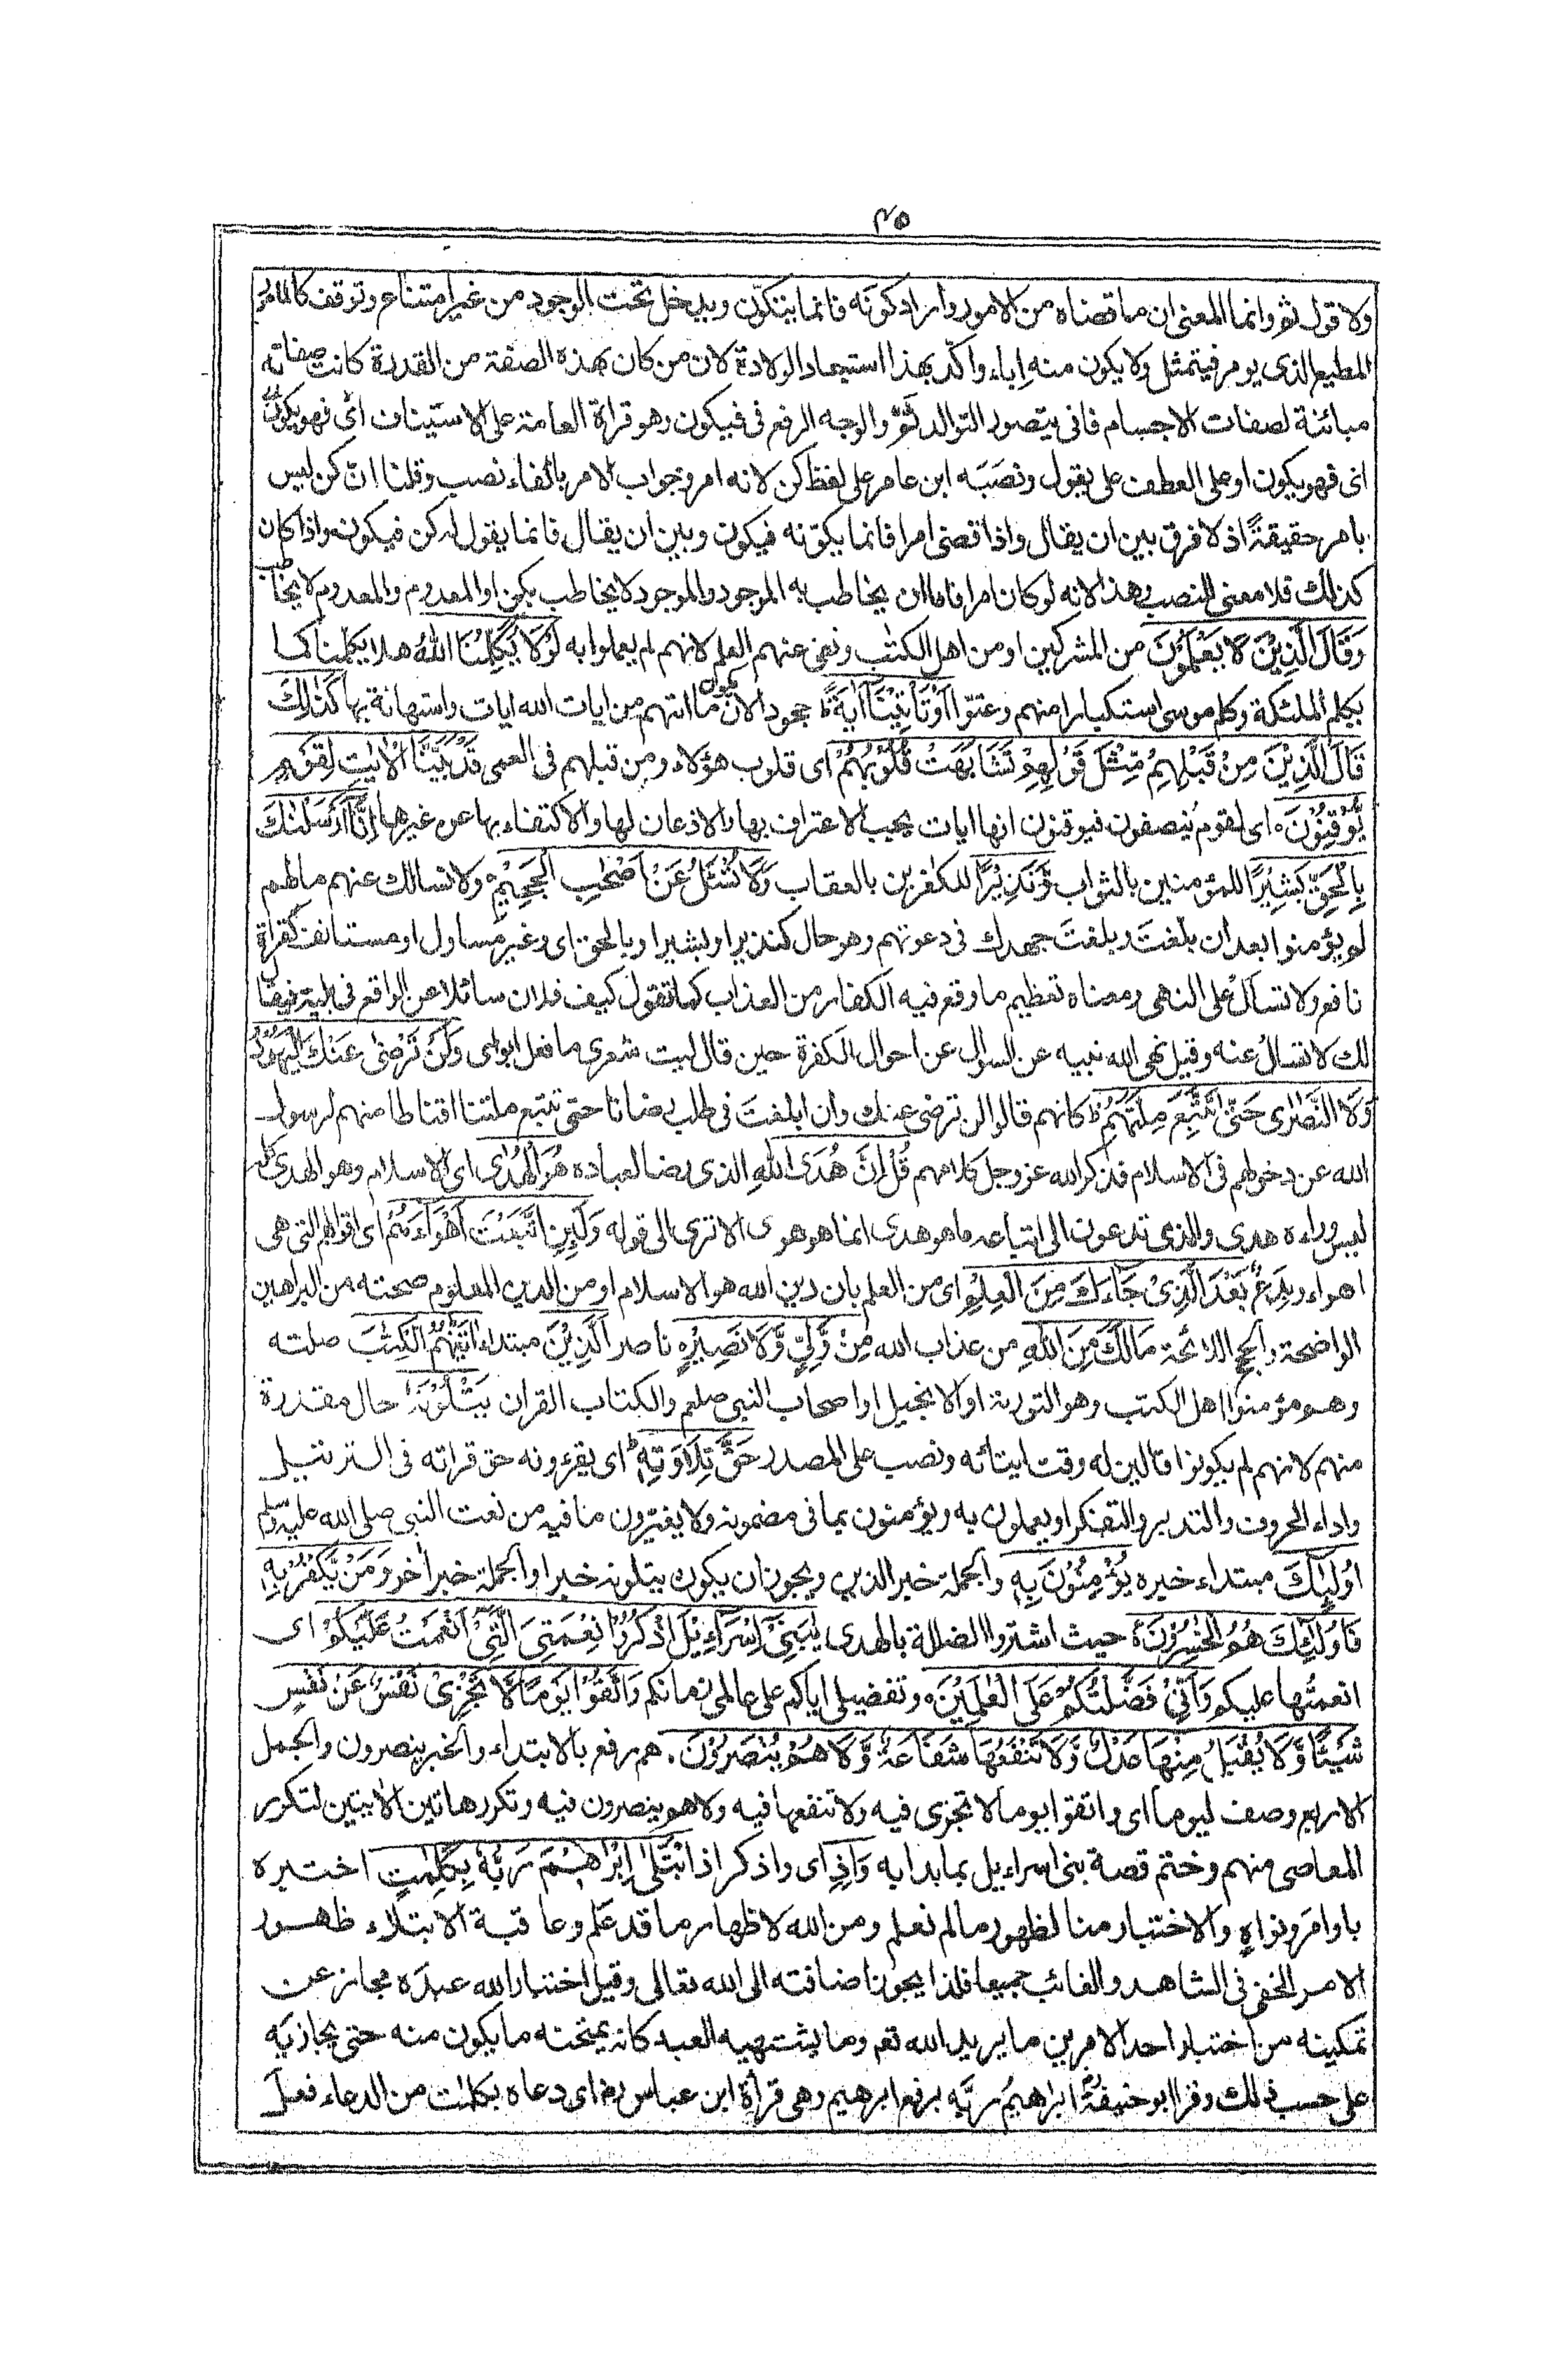 ٤٥
ولا قول ثم وانما المعنى ان ما قضاه من الامور واراد كونه فانما يتكوّن ويدخل تحت الوجود من غير امتناع وتوقف كالمامور
المطيع الذى يومر فيتمثل ولا يكون منه اِباء واكّد بهذا استبعاد الولادة لان من كان بهذه الصفة من القدرة كانت صفاته
مبائنة لصفات الاجسام فانى يتصور التوالد ثَمَّ والوجه الرفع فى فيكون وهو قراة العامة على الاستيناف اى فهو يكون
اى فهو يكون او على العطف على يقول ونصَبَه ابن عامر على لفظ كن لانه امر وجواب الامر بالفاء نصب وقلنا انّ كن ليس
بامر حقيقةً اذ لا فرق بين ان يقال واذا قضى امرا فانما يكوّنه فيكون وبين ان يقال فانما يقول له كن فيكون واذا كان
كذلك فلا معنى للنصب وهذا لانه لو كان امرا فاما ان يخاطب به الموجود والموجود لا يخاطب بكن او المعدوم والمعدوم لا يخاطب
وَقَالَ الَّذِيْنَ لَا يَعْلَمُوْنَ من المشركين او من اهل الكتٰب ونفى عنهم العلم لانهم لم يعملوا به لَوْلَا يُكَلِّمُنَا اللهُ هلا يكلمنا كما
يكلم الملٰئكة وكلم موسى استكبارا منهم وعتوّا اَوْ تَأْتِيْنَآ اٰيَةٌ ط جحود الان يكون ما اتٰهم من ايات الله ايات واستهانة بها كَذٰلِكَ
قَالَ الَّذِيْنَ مِنْ قَبْلِهِمْ مِّثْلَ قَوْلِهِمْ تَشَابَهَتْ قُلُوْبُهُمْ اى قلوب هؤلاء ومن قبلهم فى العمى قَدْ بَيَّنَّا الْاٰيٰتِ لِقَوْمٍ
يُّوْقِنُوْنَ ه اى لقوم يُنصفون فيوقنون انها ايات يجب الاعتراف بها والاذعان لها والاكتفاء بها عن غيرها اِنَّآ اَرْسَلْنٰكَ
بِالْحَقِّ بَشِيْرًا للمؤمنين بالثواب وَّنَذِيْرًا للكٰفرين بالعقاب وَّلَا تُسْئَلُ عَنْ اَصْحٰبِ الْجَحِيْمِ ولا نسالك عنهم ما لهم
لم يؤمنوا بعد ان بلّغتَ وبلغتَ جهدك فى دعوتهم وهو حال كنذيرا وبشيرا وبالحق اى وغير مسئول او مستانف كقراة
نافع ولا تسأل على النهى ومعناه تعظيم ما وقع فيه الكفار من العذاب كما تقول كيف فلان سائلا عن الواقع فى بلية فيقال
لك لا تسال عنه وقيل نهى الله نبيه عن السوال عن احوال الكفرة حين قال ليت شعرى ما فعل ابواى وَلَنْ تَرْضٰى عَنْكَ الْيَهُوْدُ
وَلَا النَّصٰرٰى حَتّٰى تَتَّبِعَ مِلَّتَهُمْ ط كانهم قالوا لن ترضى عنك وان ابلغتَ فى طلب رضانا حتى تتبع ملتنا اقناطا منهم لرسول
الله عن دخولهم فى الاسلام فذكر الله عز وجل كلامهم قُلْ اِنَّ هُدَى اللهِ الذى رضا لعباده هُوَ الْهُدٰى اى الاسلام وهو الهدى كله
ليس وراءه هدى والذى تدعون الى اتباعه ما هو هدى انما هو هوى الا ترى الى قوله وَلَئِنِ اتَّبَعْتَ اَهْوَآءَهُمْ اى اقوالهم التى هى
اهواء وبدع بَعْدَ الَّذِىْ جَآءَكَ مِنَ الْعِلْمِ اى من العلم بان دين الله هو الاسلام او من الدين المعلوم صحته من البراهين
الواضحة والحجج اللائحة مَا لَكَ مِنَ اللهِ من عذاب الله مِنْ وَّلِيٍّ وَّلَا نَصِيْرٍ ه ناصر اَلَّذِيْنَ مبتداء اٰتَيْنٰهُمُ الْكِتٰبَ صلته
وهم مؤمنوا اهل الكتٰب وهو التورٰة او الانجيل او اصحاب النبى صلعم والكتاب القران يَتْلُوْنَهٗ حال مقدرة
منهم لانهم لم يكونوا تالين له وقت ايتائه ونصب على المصدر حَقَّ تِلَاوَتِهٖ ط اى يقرءونه حق قراته فى الترتيل
واداء الحروف والتدبر والتفكر او يعملون به ويؤمنون بما فى مضمونه ولا يغيّرون ما فيه من نعت النبى صلى الله عليه وسلم
اُولٰٓئِكَ مبتداء خبره يُؤْمِنُوْنَ بِهٖ والجملة خبر الذين ويجوز ان يكون يتلونه خبرا والجملة خبر اٰخر وَمَنْ يَّكْفُرْ بِهٖ
فَاُولٰٓئِكَ هُمُ الْخٰسِرُوْنَ ه حيث اشتروا الضللة بالهدى يٰبَنِىْٓ اِسْرَآءِيْلَ اذْكُرُوْا نِعْمَتِىَ الَّتِىْٓ اَنْعَمْتُ عَلَيْكُمْ اى
انعمتها عليكم وَاَنِّىْ فَضَّلْتُكُمْ عَلَى الْعٰلَمِيْنَ ه وتفضيلى اياكم على عالمى زمانكم وَاتَّقُوْا يَوْمًا لَّا تَجْزِىْ نَفْسٌ عَنْ نَّفْسٍ
شَيْئًا وَّلَا يُقْبَلُ مِنْهَا عَدْلٌ وَّلَا تَنْفَعُهَا شَفَاعَةٌ وَّلَا هُمْ يُنْصَرُوْنَ . هم رفع بالابتداء والخبر ينصرون والجمل
الاربع وصف ليوما اى واتقوا يوما لا تجزى فيه ولا تنفعها فيه ولا هم ينصرون فيه وتكرر هاتين الايتين لتكرر
المعاصى منهم وختم قصة بنى اسراءيل بما بدا به وَاِذِ اى واذكر اذ ابْتَلٰٓى اِبْرٰهٖمَ رَبُّهٗ بِكَلِمٰتٍ اختبره
باوامر ونواهٍ والاختبار منا لظهور ما لم نعلم ومن الله لاظهار ما قد علم وعاقبة الابتلاء ظهور
الامر الخفى فى الشاهد والغائب جميعا فلذا يجوز اضافته الى الله تعالى وقيل اختبار الله عبده مجاز عن
تمكينه من اختيار احد الامرين ما يريد الله تعم وما يشتهيه العبد كانه يمتحنه ما يكون منه حتى يجازيه
على حسب ذلك وقرا ابو حنيفة ابراهيمُ ربَّه برفع ابرهيم وهى قراة ابن عباس رض اى دعاه بكلمٰت من الدعاء فعل